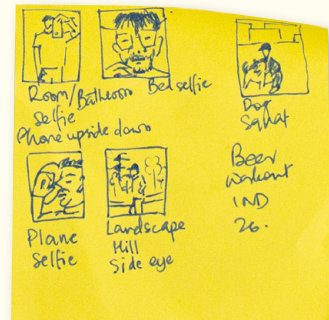 Room/Bathroom
Selfie
Phone upside down
Bed selfie
Dog
Squat
Plane
Selfie
Landscape
Hill
Side eye
Beer
Workout
IND
26.